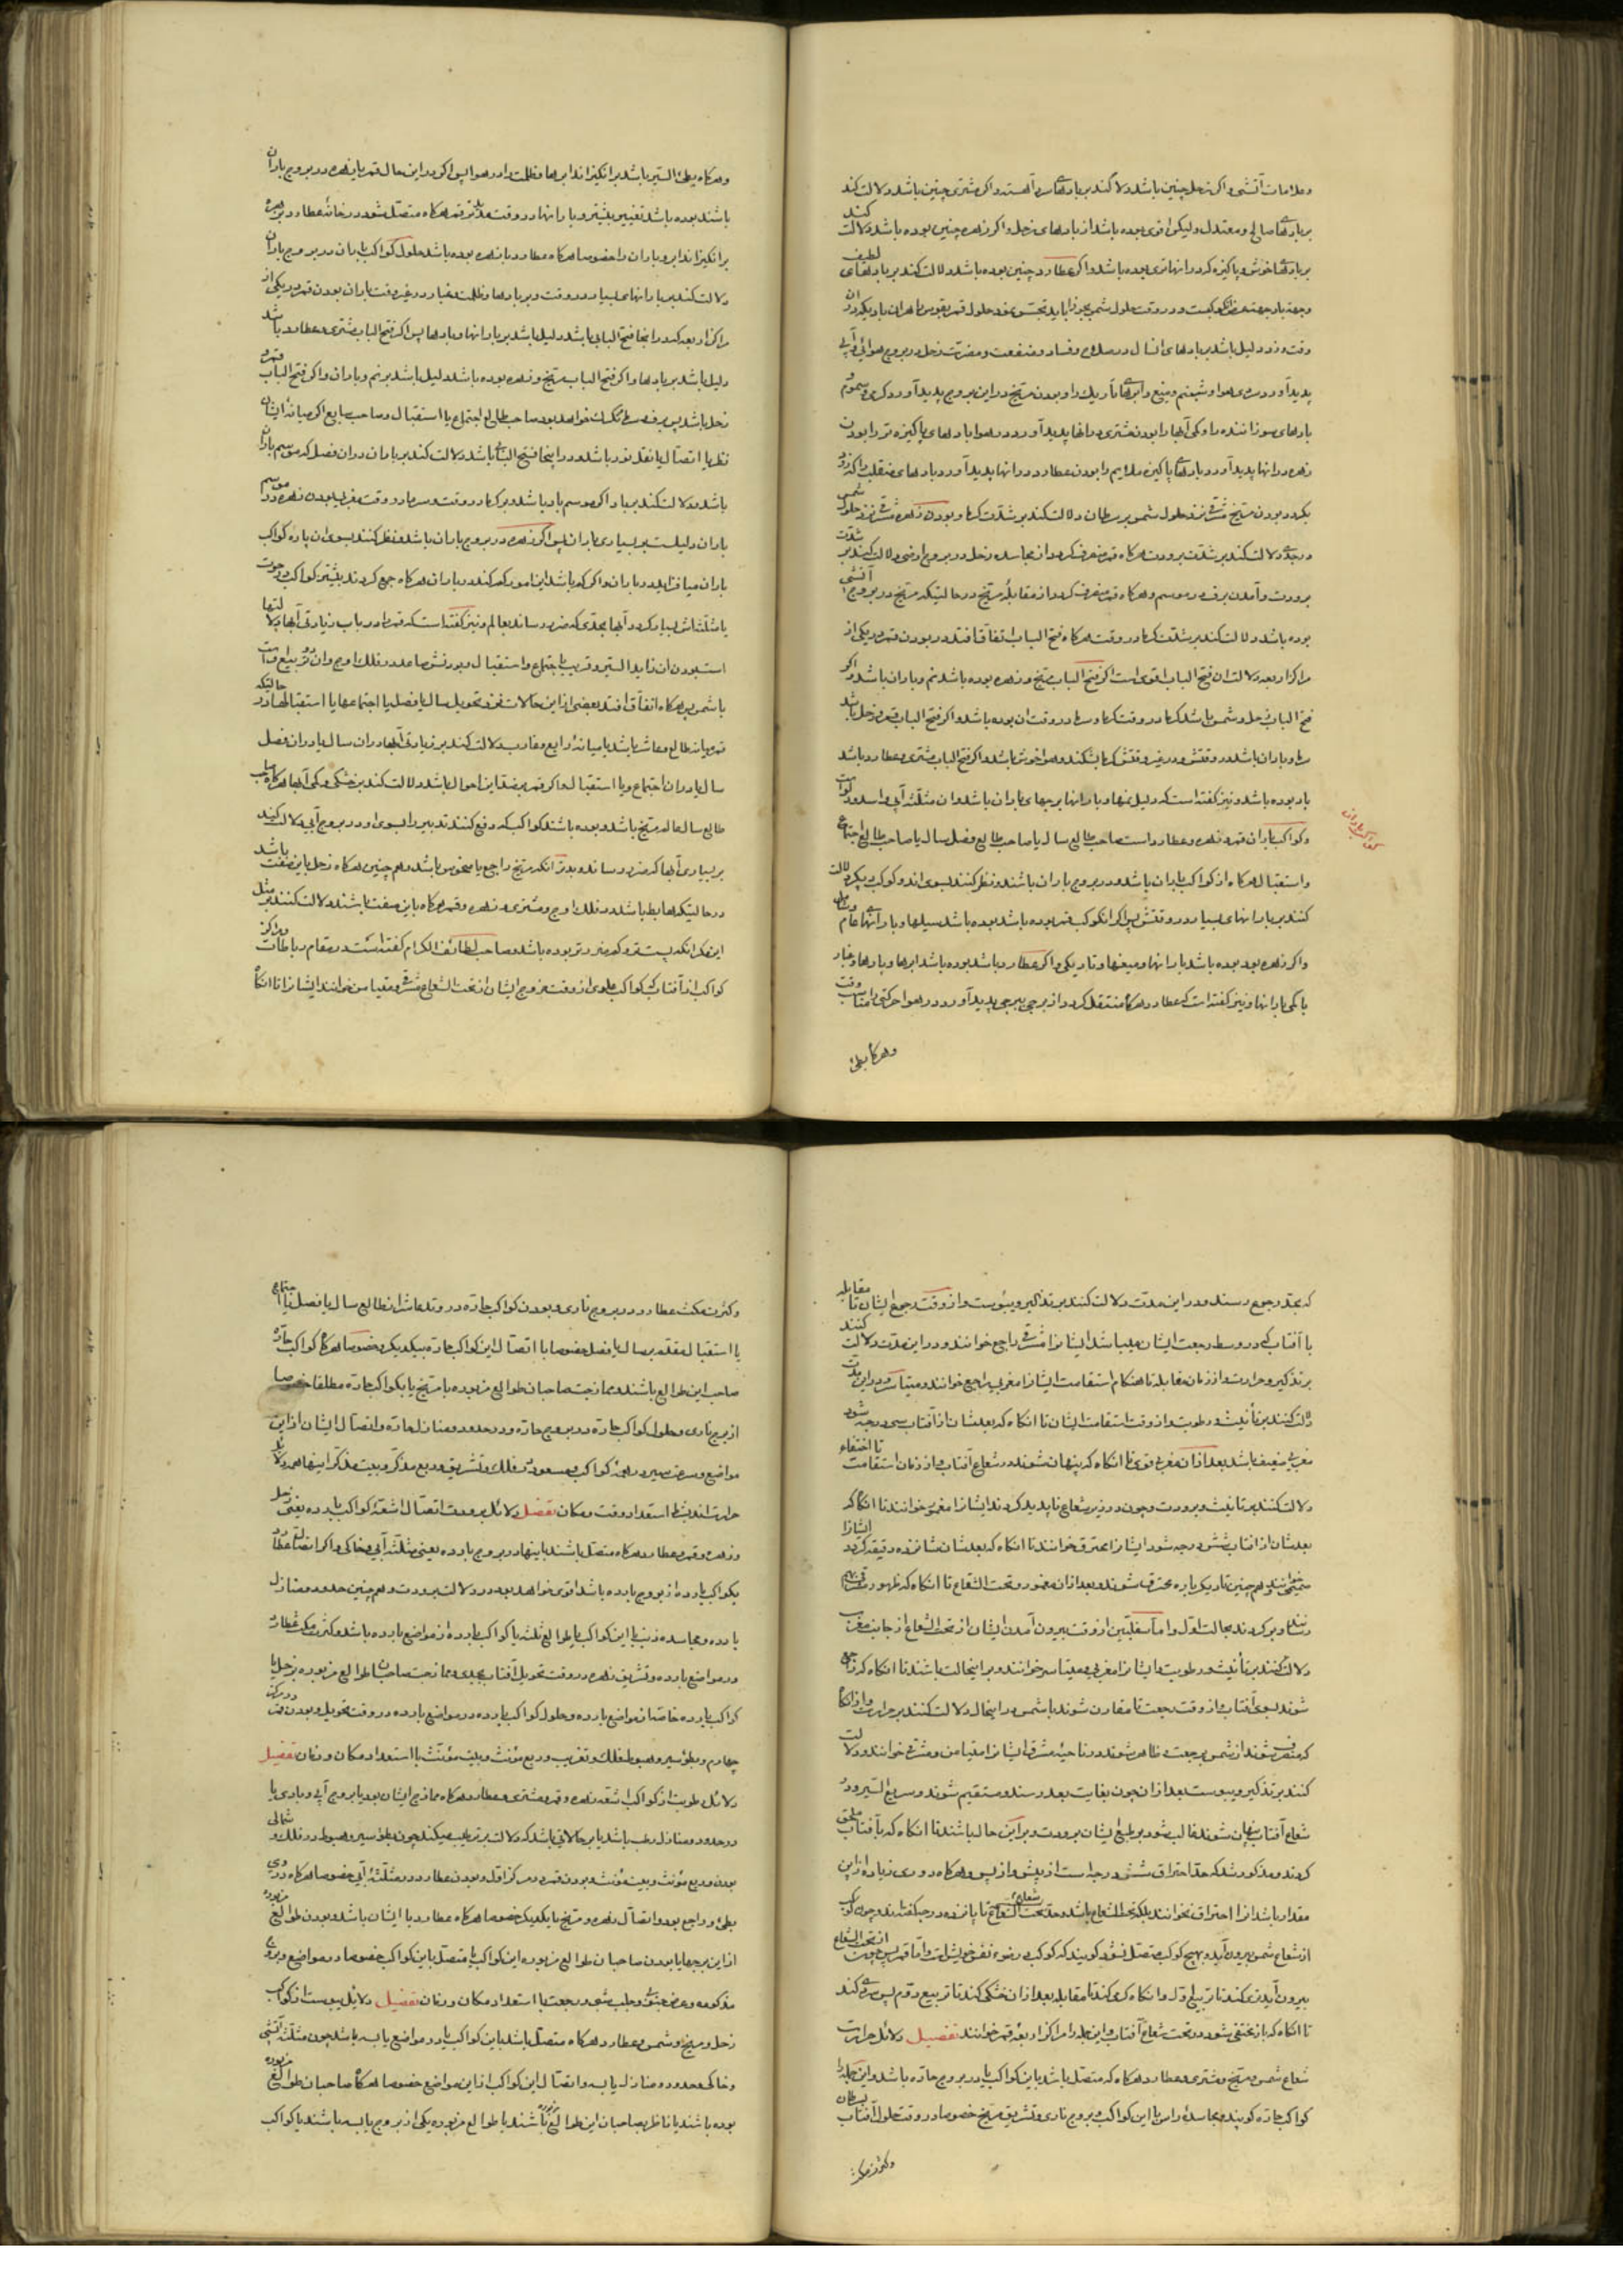 وعلامات آتشی و اکر زحل چنین باشد دلالت کند بر بادهای سرد آهسته و اکر مشتری چنین باشد دلالت کند
بر بادهای صالح و معتدل ولیکن اقوی بوده باشد از بادهای زحل و اکر زهره چنین بوده باشد دلالت کند
بر بادهای خوش و پاکیزه و اکر عطارد چنین بوده باشد دلالت کند بر بادهای لطیف
وقت وزد دلیل باشد بر بادهای انسال در صلاح و فساد و منفعت و مضرت و زحل در بروج هوائی و آبی
پدید آورد سردی هوا و شبنم و میغ و ابرهای تاریک را و بودن مریخ در این بروج پدید آورد کرمی و سموم
بادهای سوزاننده را و کمی آبها را و بودن مشتری در آنها پدید آورد در هوا بادهای پاکیزه تر و بودن
زهره در آنها پدید آورد بادهای پاکیزه ملایم را و بودن عطارد در آنها پدید آورد بادهای منقلب را که زود
بکردد و بودن مریخ مشرقی نزد حلول شمس بر سرطان دلالت کند بر شدت کرما و بودن زهره مشرقی نزد حلول شمس
در جدی دلالت کند بر شدت برودت و هرکاه قمر منصرف کردد از مجاسده زحل در بروج ارضی دلالت کند بر شدت
برودت و آمدن برف در موسم و هرکاه قمر منصرف کردد از مقابله مریخ در حالتیکه مریخ در بروج آتشی
بوده باشد دلالت کند بر شدت کرما در وقت هرکاه فتح الباب اتفاق افتد در بودن قمر در یکی از
مراکز اربعه دلالت ان فتح الباب اقوی است اکر فتح الباب مریخ و زهره بوده باشد نم و باران باشد و اکر
فتح الباب زحل و شمس باشد کرما در وقت کرما و سرما در وقت ان بوده باشد و اکر فتح الباب قمر و زحل باشد
سرما و باران باشد در وقتش و در غیر وقتش کرما بشکند و هوا خوش باشد و اکر فتح الباب مشتری و عطارد باشد
باد بوده باشد و نیز کفته است که دلیل نمها و بارانها برجهای باران باشد و ان مثلثه آبی و اسد و دلو است
کواکب باران
و کواکب باران قمر و زهره و عطارد است صاحب طالع سال یا صاحب طالع فصل سال یا صاحب طالع اجتماع
و استقبال هرکاه از کواکب باران باشد و در بروج باران باشند و نظر کنند بسوی او کوکب دیکر دلالت
کنند بر بارانهای بسیار در وقتش پس اکر ان کوکب قمر بوده باشد بوده باشد سیلها و بارانهای عام
و اکر زهره بوده باشد بارانها و میغها و تاریکی و اکر عطارد باشد بوده باشد ابرها و بادها و غبار
با کمی بارانها و نیز کفته است که عطارد هرکاه منتقل کردد از برجی ببرجی پدید آورد در هوا حرکتی را مناسب وقت
وهرکاه بطئ
وهرکاه بطئ السیر باشد برانکیزاند ابرها و ظلمت را در هوا پس اکر در این حال قمر یا زهره در بروج باران
باشند بوده باشد تغییر بیشتر و بارانها در وقت و قمر هرکاه متصل شود در خانه عطارد بزهره
برانکیزاند ابر و باران را خصوصا هرکاه عطارد با زهره بوده باشد و حلول کواکب باران در بروج باران
دلالت کند بر بارانهای بسیار در وقت و بر بادها و ظلمت و غبار در غیر وقت باران و بودن قمر در یکی از
مراکز اربعه که در انجا فتح الباب باشد دلیل باشد بر بارانها و بادها پس اکر فتح الباب مشتری و عطارد باشد
دلیل باشد بر بادها و اکر فتح الباب مریخ و زهره بوده باشد دلیل باشد بر نم و باران و اکر فتح الباب قمر و
زحل باشد پس برف و سرما و تکرک خواهد بود و صاحب طالع اجتماع یا استقبال و صاحب سابع اکر میانه ایشان
نظر یا اتصال یا نقل نور باشد و در اینجا فتح الباب باشد دلالت کند بر باران در ان فصل که موسم باران
باشد و دلالت کند بر باد اکر موسم باد باشد و بر کرما در وقت و سرما در وقت مغربی بودن زهره در موسم
باران دلیلست بر بسیاری باران پس اکر زهره در بروج باران باشد و نظر کنند بسوی ان پاره کواکب
باران میافزاید در باران و اکر کم باشد این امور کم کند در باران هرکاه جمع کردند بیشتر کواکب در حوت
یا مثلثاتش بسیار کردد آبها بحدی که ضرر رساند بعالم و نیز کفته است که قمر را در باب زیادتی آبها دلالتها
است بودن ان زاید السیر و قریب باجتماع و استقبال و بودنش صاعد در فلک اوج و ان در تربیع است
با شمس پس هرکاه اتفاق افتد بعضی از این حالات نزد تحویل سال یا فصل یا اجتماعها یا استقبالها در حالتیکه
قمر میانه طالع و عاشر باشد یا میانه رابع و غارب دلالت کند بر زیادتی آبها در ان سال یا در ان فصل
سال یا در ان اجتماع و یا استقبال و اکر قمر بضد این احوال باشد دلالت کند بر خشکی و کمی آبها هرکاه صاحب
طالع سال عالم مریخ باشد و بوده باشند کواکب که دفع کنند تدبیر را بسوی او در بروج آبی دلالت کند
بر بسیاری آبها که ضرر رساند و بدتر انکه مریخ راجع یا منحوس باشد و هم چنین هرکاه زحل باین صفت باشد
در حالتیکه هابط باشد در فلک اوج و مشتری و زهره و قمر هرکاه باین صفت باشند دلالت کنند بر مثل
این مکر انکه پست تر و کم ضرر تر بوده باشد و صاحب لطائف الکرام کفته است در مقام رباطات و مراکز
کواکب از آفتاب که کواکب علوی از وقت خروج ایشان از تحت الشعاع مشرقی و مقیاس خوانند ایشانرا تا انکاه
که بحد رجوع رسند و در این مدت دلالت کنند بر تذکیر و یبوست و از وقت رجوع ایشان تا مقابله
با آفتاب که در وسط رجعت ایشان میباشد ایشانرا مشرقی راجع خوانند و در این مدت دلالت کنند
بر تذکیر و حرارت و از زمان مقابله تا هنکام استقامت ایشانرا مغربی راجع خوانند و در این مدت
دلالت کنند بر تأنیث و رطوبت و از وقت استقامت ایشان تا انکاه که بعدشان از آفتاب سی درجه شود
مغربی ضعیف باشد بعد از ان مغربی قوی تا انکاه که پنهان شوند در شعاع آفتاب و از زمان استقامت تا اختفاء
دلالت کنند بر تأنیث و برودت و چون در زیر شعاع ناپدید کردند ایشانرا مغموم خوانند تا انکاه که
بعدشان از آفتاب شش درجه شود ایشانرا محترق خوانند تا انکاه که بعدشان شانزده دقیقه کردد ایشانرا
صمیمی خوانند و هم چنین تا دیکر باره محترق شوند و بعد از ان مغمور و تحت الشعاع تا انکاه که ظهور
رسند و برکردند بحالت اول و اما سفلیین از وقت بیرون آمدن ایشان از تحت الشعاع از جانب مغرب
دلالت کنند بر تأنیث و رطوبت و ایشانرا مغربی و مقیاس خوانند و بر اینحالت باشند تا انکاه که راجع
شوند بسوی آفتاب و از وقت رجعت تا مقارن شوند با شمس در اینحال دلالت کنند بر حرارت و از انکاه
که منصرف شوند از شمس برجعت و ظاهر شوند در ناحیه مشرق ایشانرا مقیاس و مشرقی خوانند و دلالت
کنند بر تذکیر و یبوست بعد از ان چون بغایت بعد رسند و مستقیم شوند و سریع السیر و در
شعاع آفتاب پنهان شوند غالب شود بر طبع ایشان برودت و بر این حال باشند تا انکاه که بآفتاب ملحق
کردند و مذکور شد که حد احتراق شش درجه است از پیش و از پس و هرکاه دوری زیاده از این
مقدار باشد انرا احتراق نخوانند بلکه تحت الشعاع باشد و حد تحت الشعاع تا پانزده درجه کفته‌اند و چون کوکب
از شعاع شمس بیرون آید و بهیچ کوکب متصل نشود کویند که کوکب در ضوء نفس خویش است و اما قمر پس چون از تحت الشعاع
بیرون آید تری کند تا تربیع اول و انکاه کرمی کند تا مقابله بعد از ان خشکی کند تا تربیع دوم پس سردی کند
تا انکاه که باز مختفی شود در تحت شعاع آفتاب و این جمله را مراکز اربعه قمر خوانند تفصیل دلائل حرارت
شعاع شمس و مریخ و مشتری و عطارد هرکاه که متصل باشد باین کواکب یا در بروج حاره باشد و این جمله را
کواکب حاره کویند و مجاسده راس با این کواکب و بروج ناری و تشریق مریخ خصوصا در وقت حلول آفتاب بسرطان
وکثرت مکث
وکثرت مکث عطارد در بروج ناری و بودن کواکب حاره در وتد عاشر از طالع سال یا فصل یا اجتماع
یا استقبال مقدم بر سال یا فصل خصوصا با اتصال این کواکب حاره بیکدیکر و خصوصا هرکاه کواکب حاره
صاحب این طوالع باشند و ممازجت صاحبان طوالع مزبوره با مریخ یا بکواکب حاره مطلقا خصوصا
از برج ناری و حلول کواکب حاره در بروج حاره و در حدود و منازل حاره و اتصال ایشان از این
مواضع و سرعت سیر در همه کواکب و صعود در فلک و تشریق و ربع مذکر و بیت مذکر اینها همه دلائل
حرارت‌اند بشرط استعداد وقت و مکان تفصیل دلائل برودت اتصال اشعه کواکب بارده یعنی زحل
و زهره و قمر و عطارد هرکاه متصل باشند باینها در بروج بارده یعنی مثلثه آبی و خاکی و اکر اتصال عطارد
بکواکب بارده از بروج بارده باشد اقوی خواهد بود در دلالت برودت و هم چنین حدود و منازل
بارده و مجاسده ذنب با این کواکب یا بر طوالع ثلثه یا کواکب بارده از مواضع بارده باشد و کثرت مکث عطارد
در مواضع بارده و تشریق زهره در وقت تحویل آفتاب بجدی و ممازجت صاحبان طوالع مزبوره بزحل یا
کواکب بارده خاصه از مواضع بارده و حلول کواکب بارده در مواضع بارده در وقت تحویل و بودن قمر در مرکز
چهارم و بطؤ سیر و هبوط فلک و تغریب و ربع مؤنث و بیت مؤنث با استعداد مکان و زمان تفصیل
دلائل رطوبت از کواکب اشعه زهره و قمر و مشتری و عطارد هرکاه ممازج ایشان بود یا بروج آبی و بادی یا
در حدود و منازل رطب باشد یا بر حالاتی باشد که دلالت بر ترطیب میکند چون بطؤ سیر و هبوط در فلک و شمالی
بودن و ربع مؤنث و بیت مؤنث و بودن قمر در مرکز اول و بودن عطارد در مثلثه آبی خصوصا هرکاه در وی
بطئ و راجع بود و اتصال زهره و مریخ بایکدیکر خصوصا هرکاه عطارد با ایشان باشد و بودن طوالع مزبوره
از این برجها یا بودن صاحبان طوالع مزبوره این کواکب یا متصل باین کواکب خصوصا در مواضع و بروج
مذکوره و رجعت با استعداد مکان و زمان تفصیل دلائل یبوست از کواکب
زحل و مریخ و شمس و عطارد هرکاه متصل باشد باین کواکب یا در مواضع یابسه باشد چون مثلثه آتشی
و خاکی و حدود و منازل یابسه و اتصال این کواکب از این مواضع خصوصا هرکاه صاحبان طوالع مزبوره
بوده باشند یا ناظر بصاحبان این طوالع باشند یا طوالع مزبوره یکی از بروج یابسه باشند یا کواکب